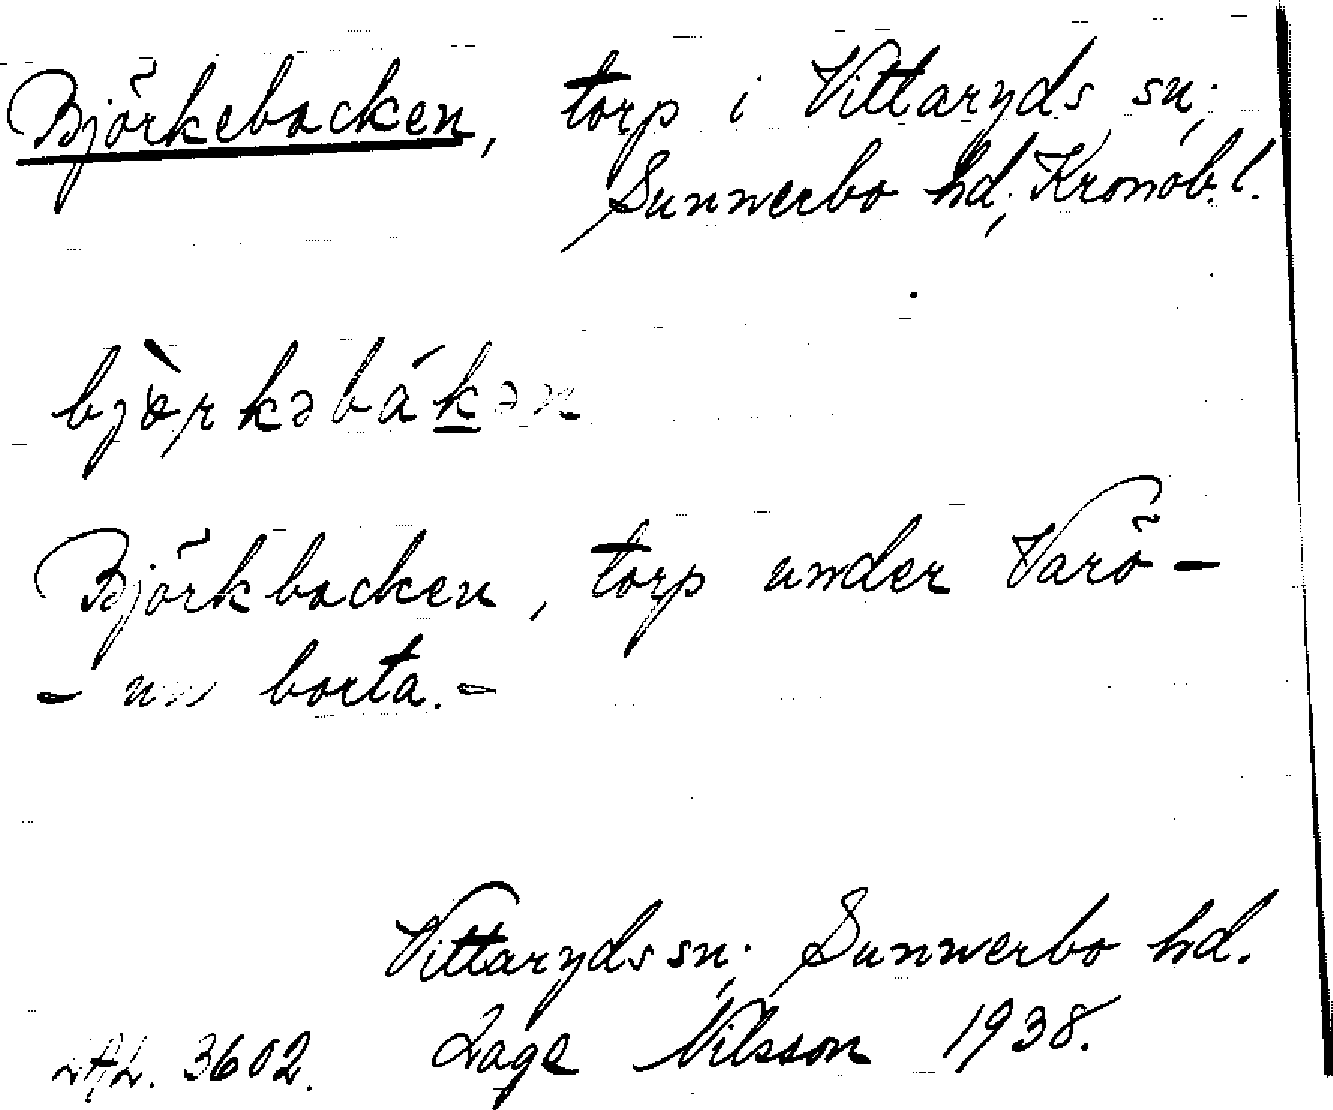 Björkebacken, torp i Vittaryds sn;
Sunnerbo hd; Kronob. l.
bjö̀rkəbákən
Björkbacken, torp under Varö –
– nu borta. –
Vittaryds sn; Sunnerbo hd.
LAL. 3602. Lage Nilsson 1938.